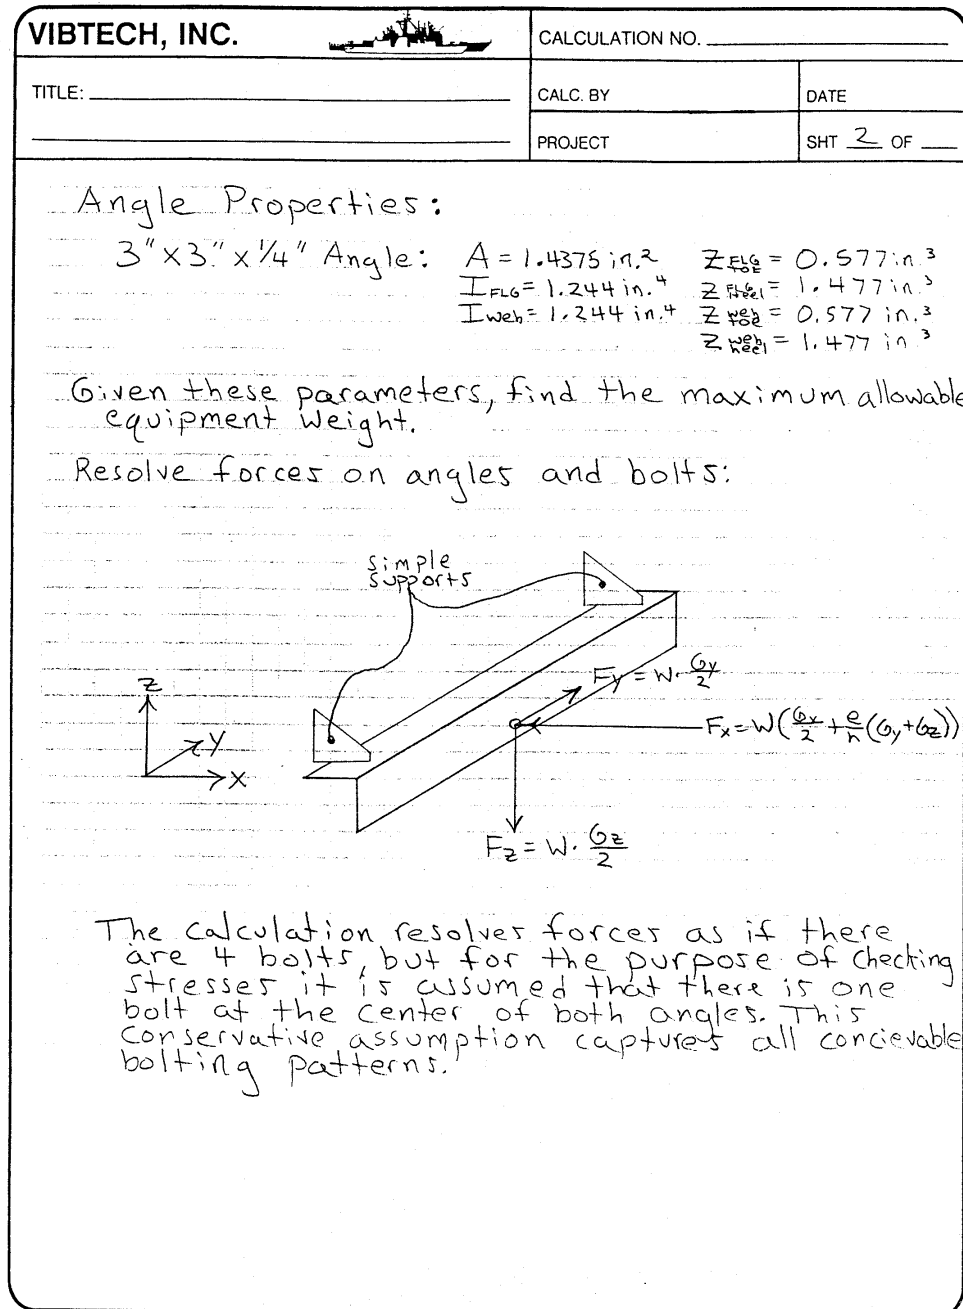 VIBTECH, INC.
CALCULATION NO.
TITLE:
CALC. BY
DATE
PROJECT
SHT 2 OF
Angle Properties:
3" x 3" x 1/4" Angle: A = 1.4375 in.² Z FLG TOE = 0.577 in³
I FLG = 1.244 in.⁴ Z FLG Heel = 1.477 in³
I web = 1.244 in.⁴ Z web TOE = 0.577 in.³
Z web heel = 1.477 in³
Given these parameters, find the maximum allowable
equipment weight.
Resolve forces on angles and bolts:
simple
supports
Z
Y
X
Fy = W · Gy/2
Fx = W(Gx/2 + e/h (Gy + Gz))
Fz = W · Gz/2
The calculation resolves forces as if there
are 4 bolts, but for the purpose of checking
stresses it is assumed that there is one
bolt at the center of both angles. This
conservative assumption captures all concievable
bolting patterns.